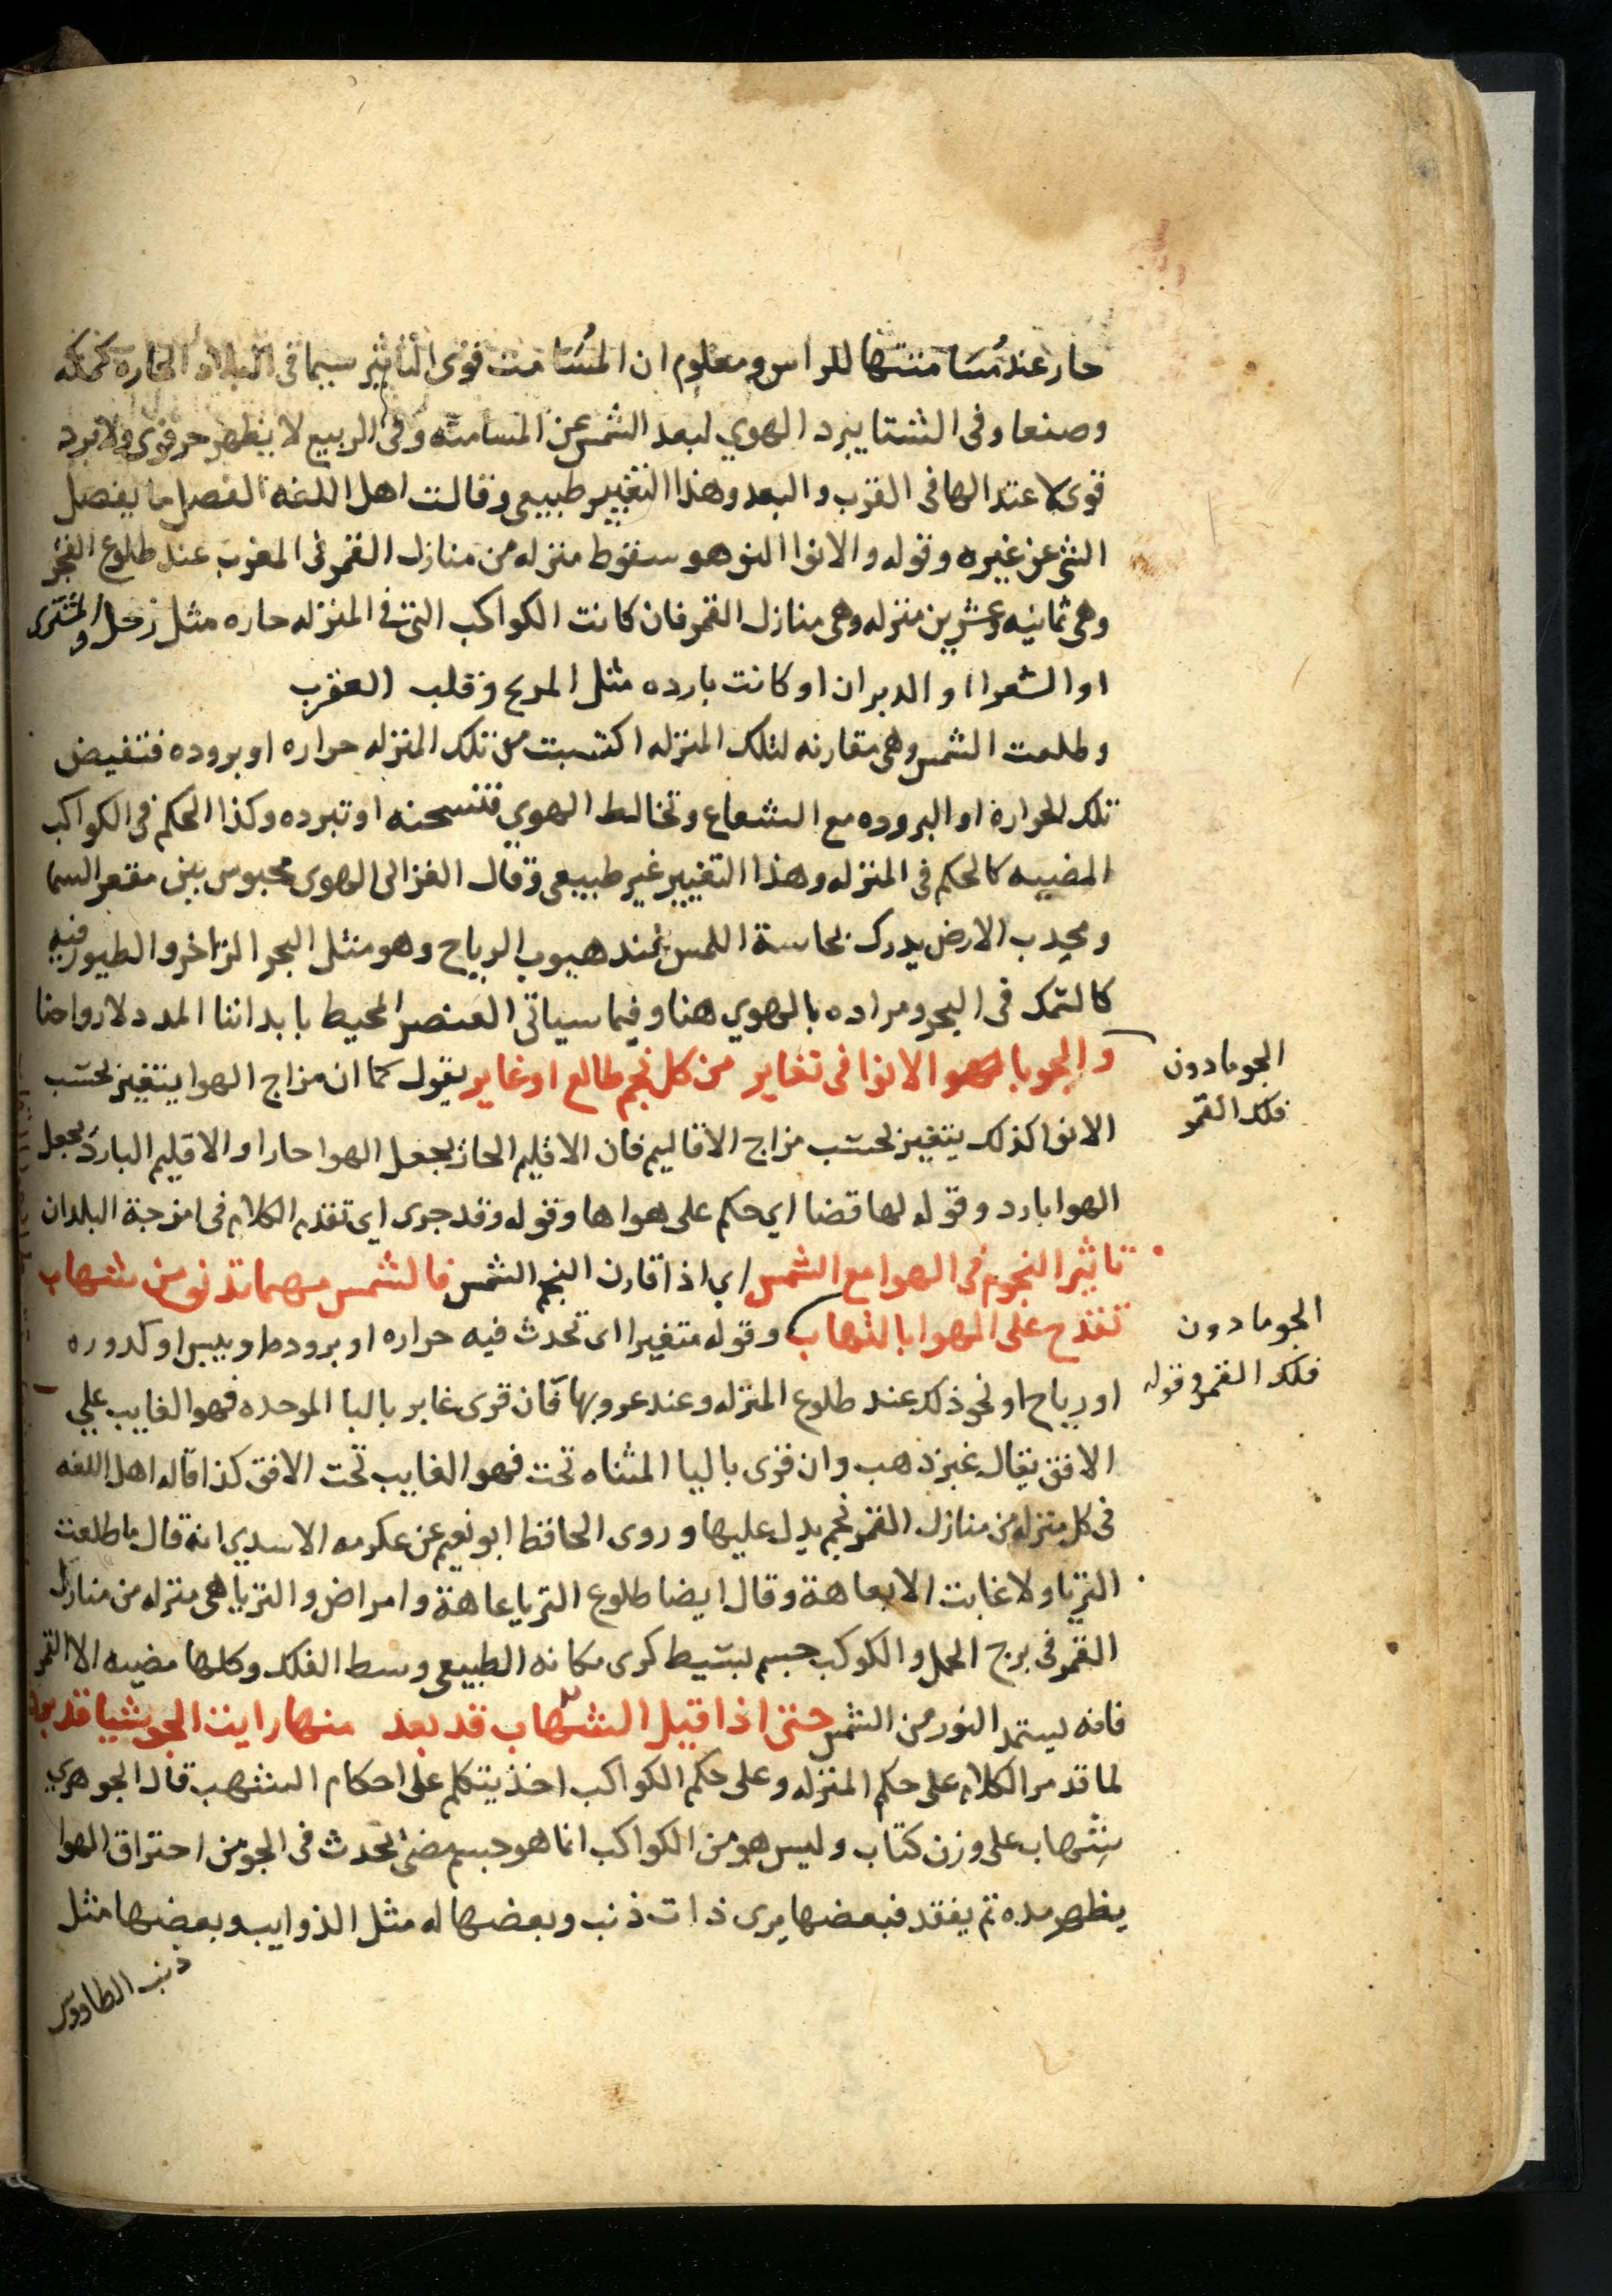 حار عند مُسَامتتها للراس ومعلوم ان المُسَامت قوى التاثير سيما فى البلاد الحاره كمكه
وصنعا وفى الشتا يبرد الهوي لبعد الشمس عن المسامته وفى الربيع لا يظهر حر قوى ولا برد
قوى لاعتدالها فى القرب والبعد وهذا التغيير طبيعى وقالت اهل اللغه الفصل ما يفصل
الشى عن غيره وقوله والانوا النو هو سقوط منزله من منازل القمر فى المغرب عند طلوع الفجر
وهى ثمانيه وعشرين منزله وهى منازل القمر فان كانت الكواكب التى فى المنزله حاره مثل زحل والمشترى
او الشعرا او الدبران او كانت بارده مثل المريخ وقلب العقرب
وطلعت الشمس وهى مقارنه لتلك المنزله اكتسبت من تلك المنزله حراره او بروده فتفيض
تلك الحرارة او البروده مع الشعاع وتخالط الهوي فتسحنه او تبرده وكذا الحكم فى الكواكب
المضييه كالحكم فى المنزله وهذا التغيير غير طبيعى وقال الغزالى الهوى محبوس بين مقعر السما
ومحدب الارض يدرك بحاسة اللمس عند هبوب الرياح وهو مثل البحر الزاخر والطيور فيه
كالسمك فى البحر ومراده بالهوي هنا وفيما سياتى العنصر المحيط بابداننا المدد لارواحنا
والجو بالهو الانوا فى تغاير من كل نجم طالع او غاير يقول كما ان مزاج الهوا يتغير بحسب
الجو مادون
فلك القمر
الانوا كذلك يتغير بحسب مزاج الاقاليم فان الاقليم الحار يجعل الهوا حارا والاقليم البارد يجعل
الهوا بارد وقوله لها قضا اي حكم على هواها وقوله وقد جرى اي تقدم الكلام فى امزجة البلدان
تاثير النجوم فى الهوا مع الشمس اي اذا قارن النجم الشمس فالشمس مهما تدنو من شهاب
تقدح على الهوا بالتهاب وقوله متغيرا اى تحدث فيه حراره او برودط او يبس او كدوره
الجو مادون
فلك القمر وقوله
او رياح او نحو ذلك عند طلوع المنزله وعند غروبها فان قرى غابر بالبا الموحده فهو الغايب علي
الافق يقال غبر ذهب وان قرى باليا المثناه تحت فهو الغايب تحت الافق كذا قاله اهل اللغه
فى كل منزله من منازل القمر نجم يدل عليها وروى الحافظ ابو نعيم عن عكرمه الاسدي انه قال ما طلعت
الثريا ولا غابت الا بعاهة وقال ايضا طلوع الثريا عاهة وامراض والثريا هى منزله من منازل
القمر فى برج الحمل والكوكب جسم بسيط كرى مكانه الطبيعى وسط الفلك وكلها مضيه الا القمر
فانه يستمد النور من الشمس حتى اذا قيل الشهاب قد بعد منها رايت الجو شيا قد
لما قد مر الكلام على حكم المنزله وعلى حكم الكواكب اخذ يتكلم على احكام الشهب قال الجوهري
شِهاب على وزن كتاب وليس هو من الكواكب انما هو جسم مضى يحدث فى الجو من احتراق الهوا
يظهر مده ثم يفقد فبعضها يرى ذات ذنب وبعضها له مثل الذوايب وبعضها مثل
ذنب الطاووس